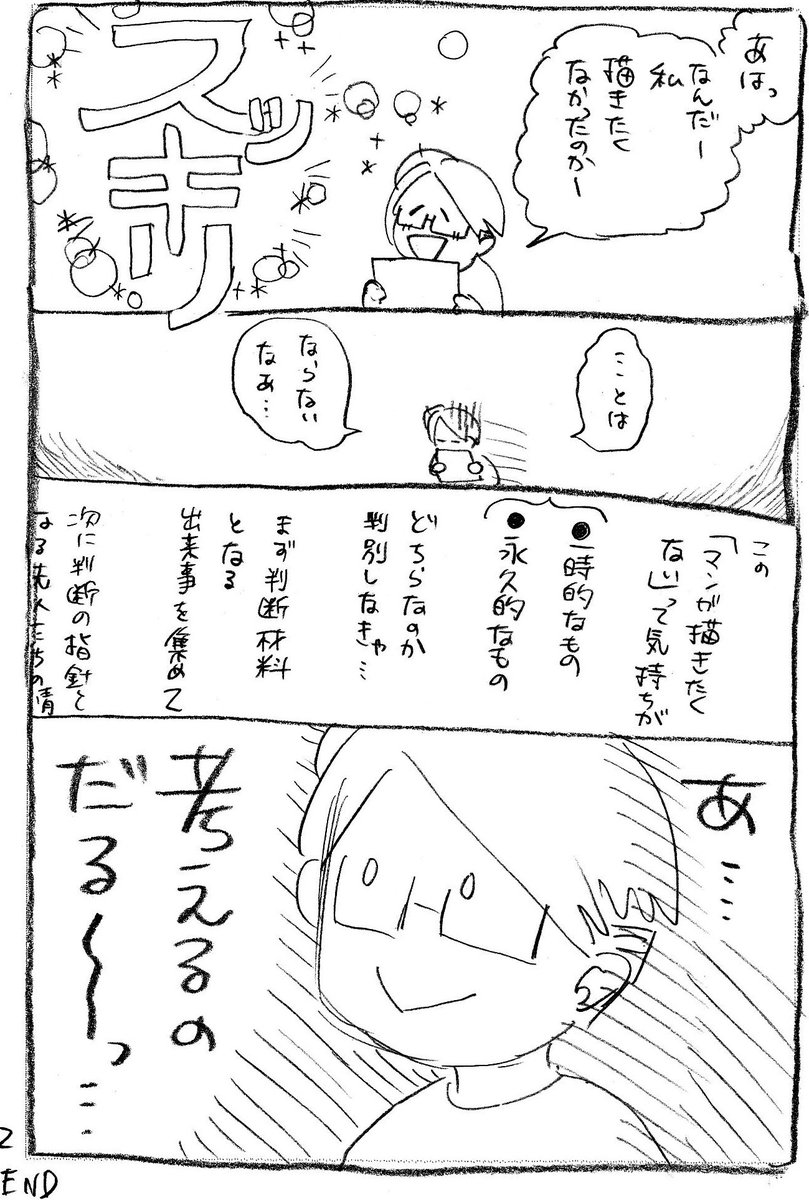 あはっ
なんだー
私
描きたく
なかったのかー
スッ
キリ
ことは
ならない
なぁ…
この
「マンガ描きたく
ない」って気持ちが
●一時的なもの
●永久的なもの
どちらなのか
判別しなきゃ…
まず判断材料
となる
出来事を集めて
次に判断の指針と
なる先人たちの情
あ……
考えるの
だる〜〜っ…
2
END